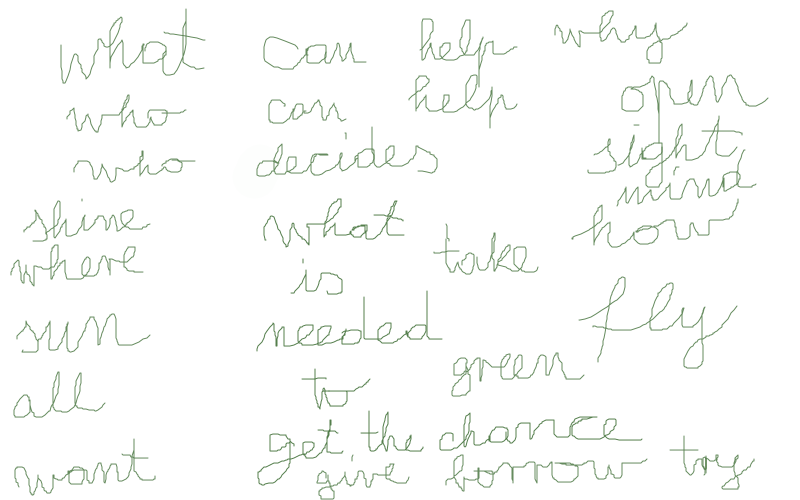 what can help why
who can help open
who decides sight
mind
shine what how
where is take
sun needed fly
all to green
get the chance
want give borrow try